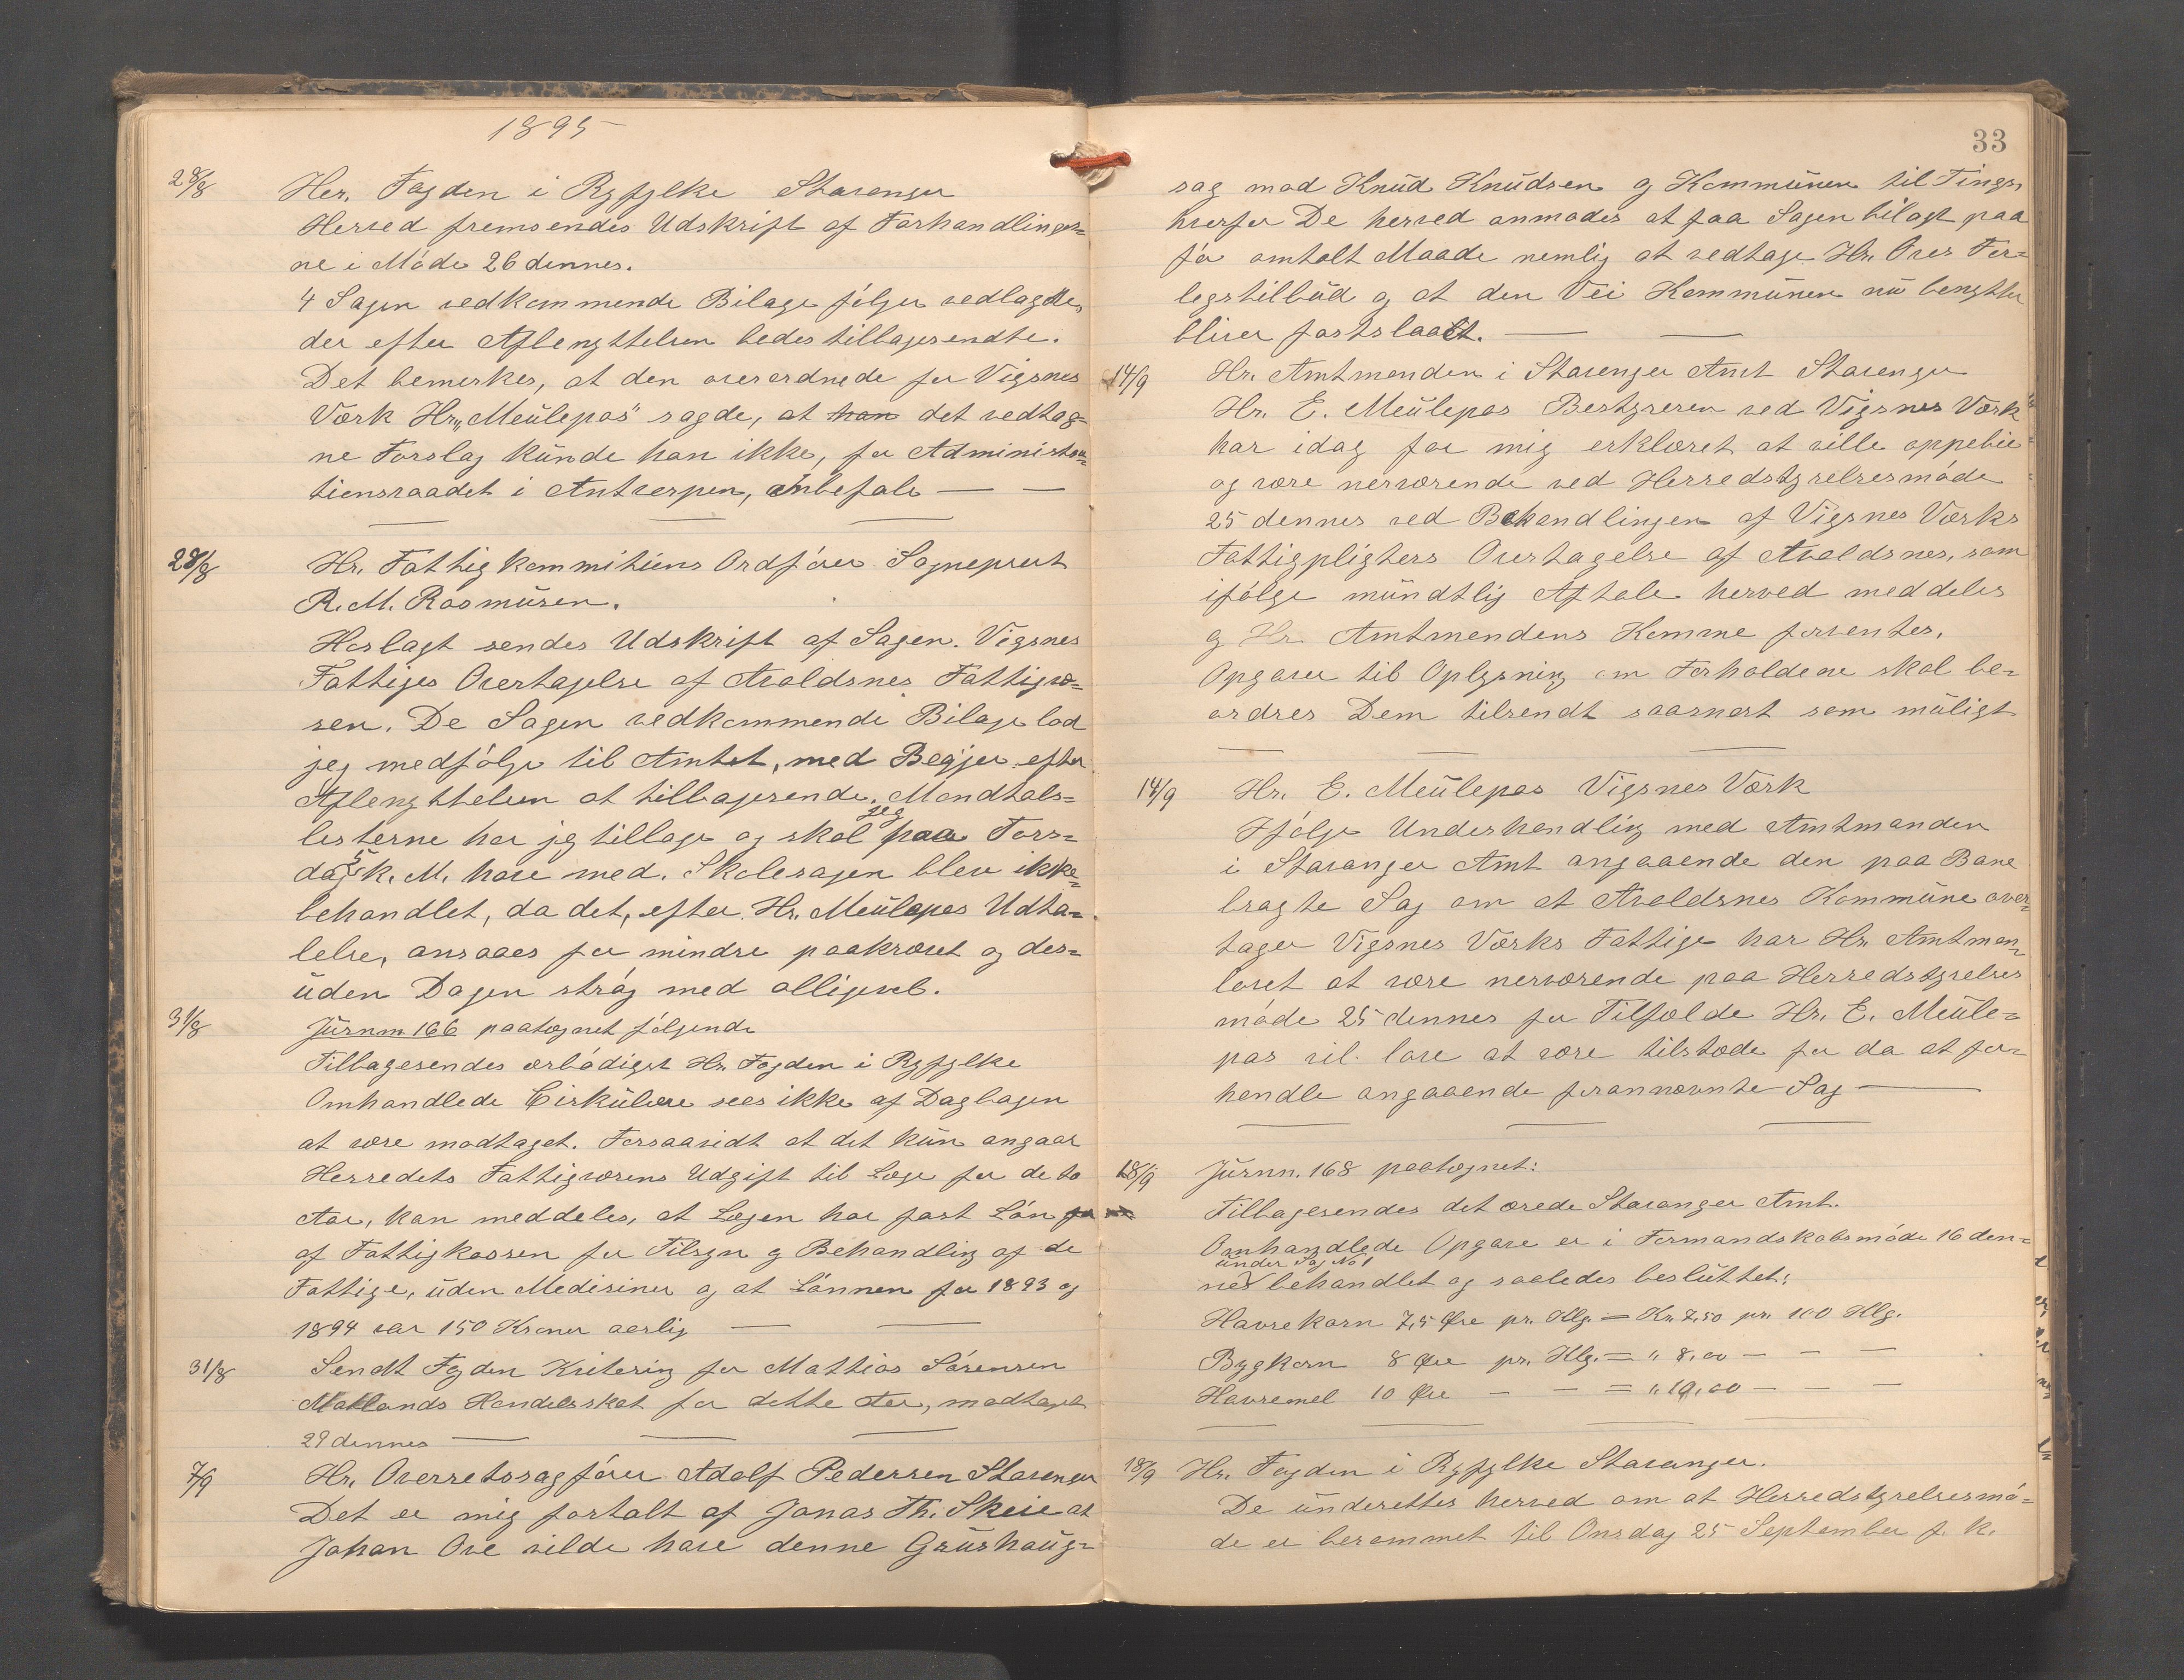 1895
28/8 Her. Fogden i Ryfylke Stavanger
Herved fremsendes Udskrift af Forhandlinger=
ne i Möde 26 dennes.
4 Sagen vedkommende Bilage følger vedlagdte,
der efter Aflenyttelsen bedes tilbagesendte.
Det bemerkes, at den overordnede for Vigsnes
Værk Hr. „Meülepas" sagde, at han det vedtag=
ne Forslag künde han ikke, for Administra=
tionsraadet i Antverpen, anbefale — —
28/8 Hr. Fattigkommitiens Ordförer Sogneprest
R. M. Rasmüsen.
Hoslagt sendes Udskrift af Sagen. Vigsnes
Fattiges Overtagelse af Avaldsnes Fattigvæ=
sen. De Sagen vedkommende Bilage lod
jeg medfölge til Amtet, med Begjer efter
Aflenyttelsen at tilbagesende. Mandtals=
listerne har jeg tilbage og skal jeg paa Tors=
dag 5 k. M. have med. Skolesagen blev ikke=
behandlet, da det, efter Hr. Meülepas Udta=
lelse, ansaaes for mindre paakrævet og des=
üden Dagen strög med alligevel.
31/8 Jürnn 166 paategnet fölgende
Tilbagesendes ærbödigst Hr. Fogden i Ryfylke
Omhandlede Cirkülære sees ikke af Dagbogen
at være modtaget. Forsaavidt at det kün angaar
Herredets Fattigvæsens Udgift til Læge for de to
Aar, kan meddeles, at Lægen har fast Lön
af Fattigkassen for Tilsyn og Behandling af de
Fattige, üden Medisiner og at Lönnen for 1893 og
1894 var 150 Kroner aarlig — —
31/8 Sendt Fogden Kvitering for Mattias Sörensen
Matlands Handelsskat for dette Aar, modtaget
29 dennes — — —
7/9 Hr. Overretssagförer Adolf Pedersen Stavanger
Det er mig fortalt af Jonas Th. Skeie at
Johan Ove vilde have denne Grüshaüg=
33
sag mod Knüd Knüdsen og Kommünen til Tings,
hvorfor De herved anmodes at faa Sagen bilagt paa
för omtalt Maade nemlig at vedtage Hr. Oves For=
legstilbüd og at den Vei Kommünen nü benytter
bliver fastslaaet. — —
14/9 Hr. Amtmanden i Stavanger Amt Stavanger
Hr. E. Meülepas Bestyreren ved Vigsnes Værk
har idag for mig erklæret at ville oppebie
og være nerværende ved Herredstyrelsesmöde
25 dennes ved Behandlingen af Vigsnes Værks
Fattigpligters Overtagelse af Avaldsnes, som
ifölge mündtlig Aftale herved meddeles
og Hr. Amtmandens Komme forventes.
Opgaver til Oplysning om Forholdene skal be=
ordres Dem tilsendt saasnart som müligt
14/9 Hr. E. Meülepas Vigsnes Værk
Ifölge Underhandling med Amtmanden
i Stavanger Amt angaaende den paa Bane
bragte Sag om at Avaldsnes Kommüne over=
tager Vigsnes Værks Fattige har Hr. Amtman=
lovet at være nerværende paa Herredstyrelses
möde 25 dennes for Tilfælde Hr. E. Meüle=
pas vil love at være tilstede for da at for=
handle angaaende forannævnte Sag —
18/9 Jürnn. 168 paategnet:
Tilbagesendes det ærede Stavanger Amt.
Omhandlede Opgave er i Formandskabsmöde 16 den=
nes under Sag No 1 behandlet og saaledes beslüttet:
Havrekorn 7,5 Øre pr. Klg. = Kr. 7,50 pr. 100 Klg.
Bygkorn 8 Øre pr. Klg. = " 8,00 — — —
Havremel 10 Øre — — = " 10,00 — — —
18/9 Hr. Fogden i Ryfylke Stavanger.
De ünderettes herved om at Herredstyrelsesmö=
de er berammet til Onsdag 25 September f. k.